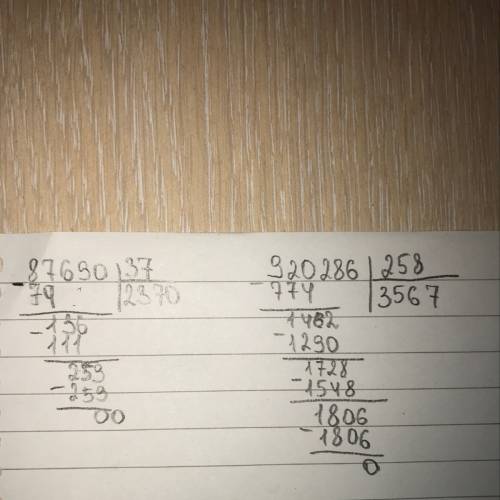 87690 | 37
- 74 | 2370
136
- 111
259
- 259
00
920286 | 258
- 774 | 3567
1462
- 1290
1728
- 1548
1806
- 1806
0